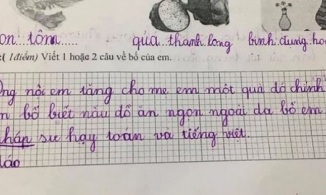 on tôm...... quả thanh long bình đựng ho
(1điểm) Viết 1 hoặc 2 câu về bố của em.
ng nói em tặng cho mẹ em một quả đó chính
n bố biết nấu đồ ăn ngon ngoài da bố em
háp sư hay toán và tiếng việt.
láo